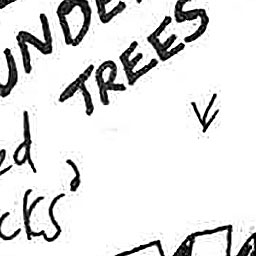 UNDE
TREES
ed
cks'